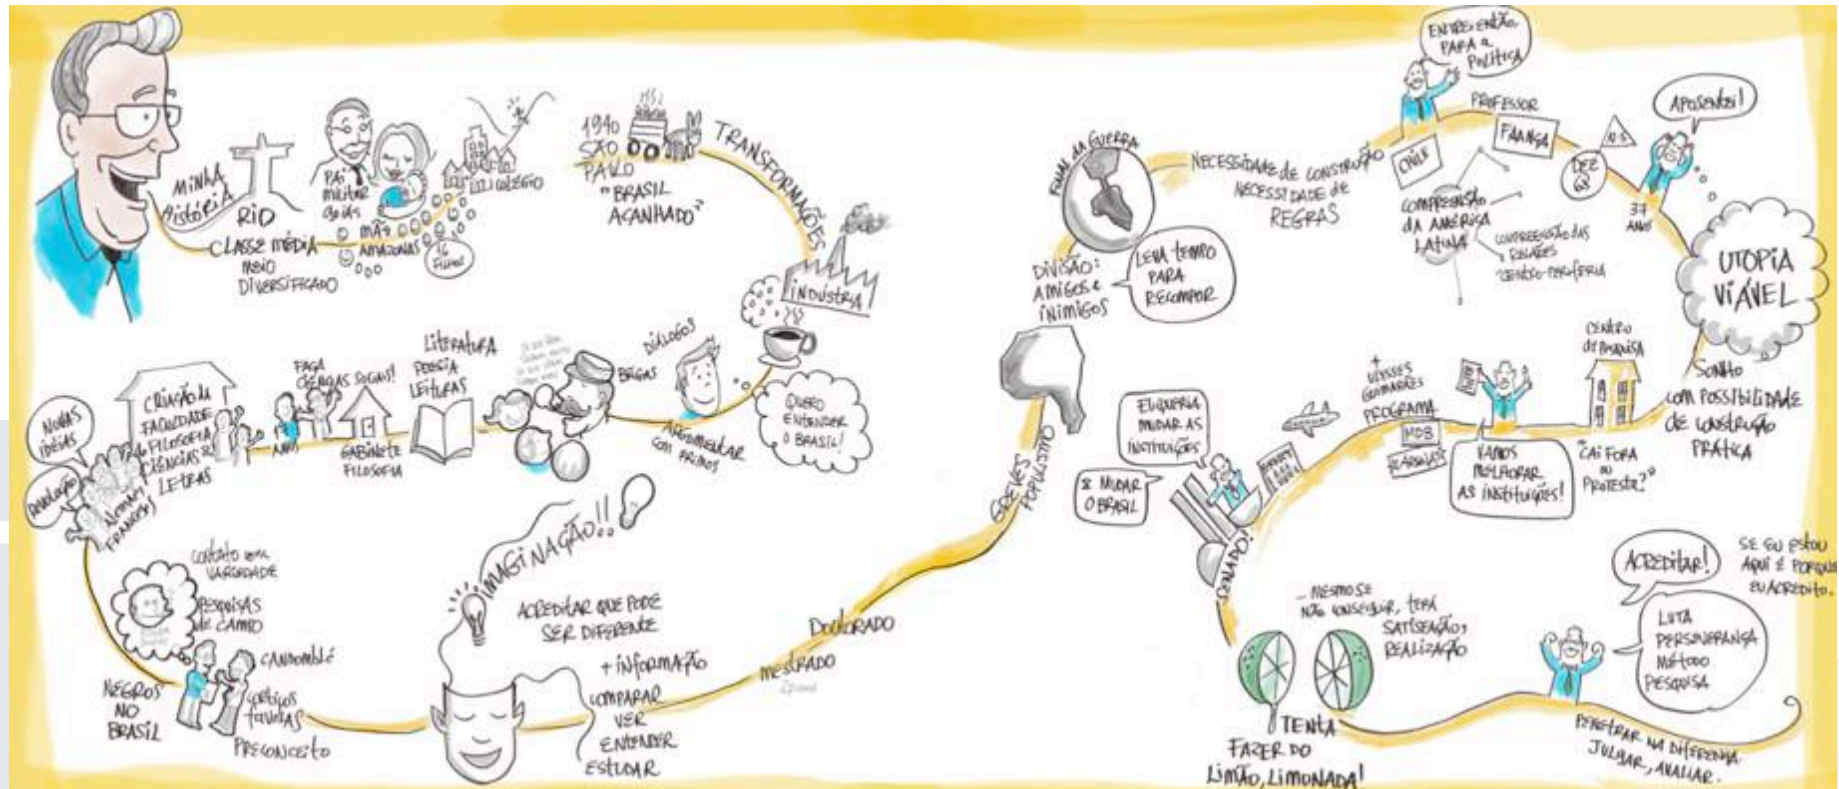 MINHA
HISTÓRIA
RIO
CLASSE MÉDIA
MEIO
DIVERSIFICADO
PAI
militar
goiás
MÃE
AMAZONAS
16
FILHOS
COLÉGIO
1940
SÃO
PAULO
"BRASIL
ACANHADO"
TRANSFORMAÇÕES
INDÚSTRIA
QUERO
ENTENDER
O BRASIL!
ARGUMENTAR
COM PRIMOS
DIÁLOGOS
BRIGAS
LITERATURA
POESIA
LEITURAS
GABINETE
FILOSOFIA
FAÇA
CIÊNCIAS SOCIAIS!
CRIAÇÃO da
FACULDADE
FILOSOFIA
CIÊNCIAS &
LETRAS
NOVAS
IDÉIAS
NEGROS
NO
BRASIL
contato com
VARIEDADE
PESQUISAS
de CAMPO
CANDOMBLÉ
cortiços
favelas
PRECONCEITO
IMAGINAÇÃO!!
ACREDITAR QUE PODE
SER DIFERENTE
+ INFORMAÇÃO
COMPARAR
VER
ENTENDER
ESTUDAR
MESTRADO
DOUTORADO
GREVES
POPULISMO
DIVISÃO:
AMIGOS e
INIMIGOS
LEVA TEMPO
PARA
RECOMPOR
FINAL DA GUERRA
NECESSIDADE de CONSTRUÇÃO
NECESSIDADE de
REGRAS
ENTREI ENTÃO
PARA a
POLÍTICA
PROFESSOR
CHILE
FRANÇA
COMPREENSÃO
DA AMÉRICA
LATINA
COMPREENSÃO DAS
RELAÇÕES
CENTRO-PERIFERIA
DEZ
68
37
ANOS
APOSENTEI!
UTOPIA
VIÁVEL
SONHO
COM POSSIBILIDADE
DE CONSTRUÇÃO
PRÁTICA
CENTRO
de PESQUISA
"CAI FORA
OU
PROTESTA?"
VAMOS
MELHORAR
AS INSTITUIÇÕES!
+
ULYSSES
GUIMARÃES
PROGRAMA
MDB
EU QUERIA
MUDAR AS
INSTITUIÇÕES
& MUDAR
O BRASIL
SENADO!
... MESMO SE
NÃO CONSEGUIR, TERÁ
SATISFAÇÃO,
REALIZAÇÃO
TENTA
FAZER DO
LIMÃO, LIMONADA!
ACREDITAR!
SE EU ESTOU
AQUI É PORQUE
EU ACREDITO.
LUTA
PERSEVERANÇA
MÉTODO
PESQUISA
PENETRAR NA DIFERENÇA
JULGAR, AVALIAR.